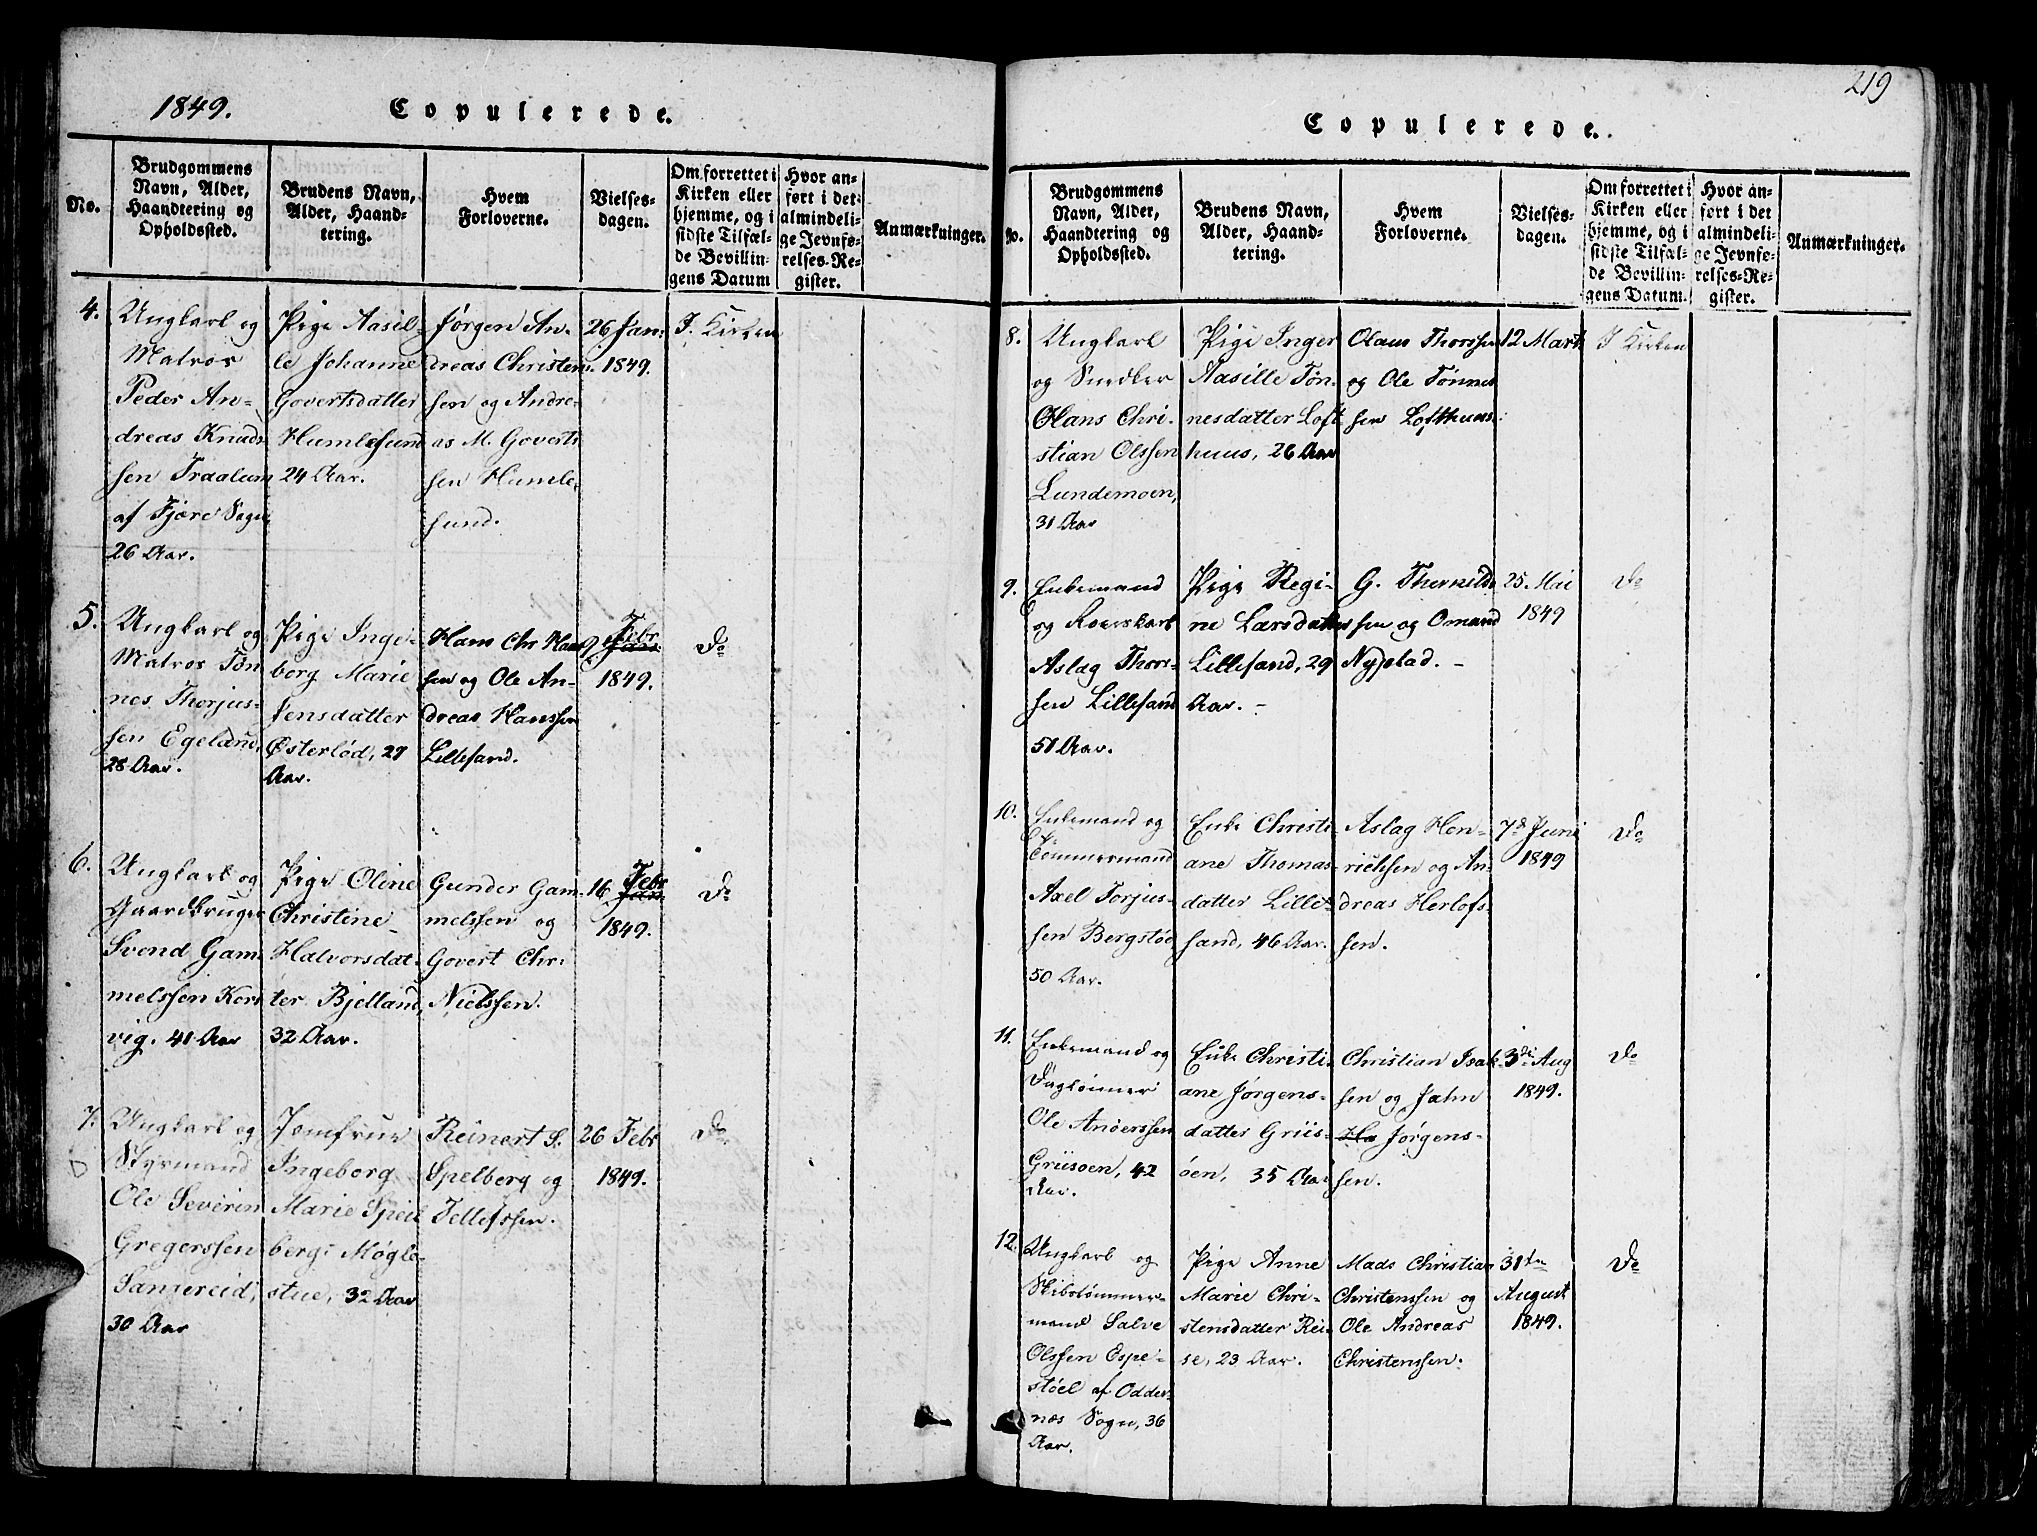 1849.
Copulerede.
No.
Brudgommens
Navn, Alder,
Haandtering og
Opholdssted.
Brudens Navn,
Alder, Haand-
tering.
Hvem
Forloverne.
Vielses-
dagen.
Om forrettet i
Kirken eller
hjemme, og i
sidste Tilfæl-
de Bevillin-
gens Datum
Hvor an-
ført i det
almindeli-
ge Jevnfø-
relses-Re-
gister.
Anmærkninger.
4.
Ungkarl og
Matros
Peder An-
dreas Knuds-
sen Traalum
af Fjære Sogn
26 Aar.
Pige Aasil-
le Johanne
Govertsdatter
Humlesund
24 Aar.
Jørgen An-
dreas Christen-
sen og Andre-
as M. Goverts
sen Humle-
sund.
26 Jan:
1849.
I. Kirken
5.
Ungkarl og
Matros Tøn
nes Thorjus-
sen Egeland,
28 Aar.
Pige Inge-
borg Marie
Jensdatter
Østerlød, 27
Aar.
Hans Chr Hans
sen og Ole An-
dreas Hanssen
Lillesand.
9 Febr
Jan.
1849.
Do
6.
Ungkarl og
Gaardbruger
Svend Gam-
melssen Kors
vig. 41 Aar
Pige Oline
Christine
Halvorsdat-
ter Bjelland,
32 Aar.
Gunder Gam-
melssen og
Govert Chr:
Nielssen.
16 Febr
Jan.
1849.
Do
7.
Ungkarl og
Styrmand
Ole Severin
Gregerssen
Sangereid,
30 Aar
Jomfrue
Ingeborg
Marie Speil
berg i Møgle-
stue, 32 Aar
Reinert S.
Spelberg og
Tellefssen.
26 Febr
1849.
Do
219
Copulerede.
No.
Brudgommens
Navn, Alder,
Haandtering og
Opholdssted.
Brudens Navn,
Alder, Haand-
tering.
Hvem
Forloverne.
Vielses-
dagen.
Om forrettet i
Kirken eller
hjemme, og i
sidste Tilfæl-
de Bevillin-
gens Datum.
Hvor an-
ført i det
almindeli-
ge Jevnfø-
relses-Re-
gister.
Anmærkninger.
8.
Ungkarl
og Snedker
Hans Chri-
stian Olssen
Lundemoen,
31 Aar
Pige Inger
Aasille Tøn-
nesdatter Loft
huus, 26 Aar
Olaus Thorssen
og Ole Tønnes
sen Lofthuus
12 Marts
I Kirken
9.
Enkemand
og Roerskarl
Aslag Thors-
sen Lillesand
51 Aar.
Pige Regi-
ne Larsdatter
Lillesand, 29
Aar. -
G.
sen og Omund
Nyplad. -
25. Mai
1849
Do
10.
Enkemand og
Tømmermand
Axel Torjus-
sen Bergstød
50 Aar.
Enke Christi-
ane Thomas-
datter Lille-
sand, 46 Aar.
Aslag Hen-
richsen og An-
dreas Herlofs-
sen.
7de Juni
1849
Do
11.
Enkemand og
Dagløinner
Ole Anderssen
Griisøen, 42
Aar.
Enke Christi-
ane Jørgens-
datter Griis-
øen, 35 Aar
Christian Isak-
sen og Jahn
Ha Jørgens-
sen.
3de Aug
1849.
Do
12.
Ungkarl og
Skibstømmer-
mand Salve
Olssen Espe-
støel af Odder-
næs Sogn, 36
Aar.
Pige Anne
Marie Chri-
stensdatter Rei-
se, 23 Aar.
Mads Christian
Christenssen og
Ole Andreas
Christenssen.
31te
August
1849.
Do